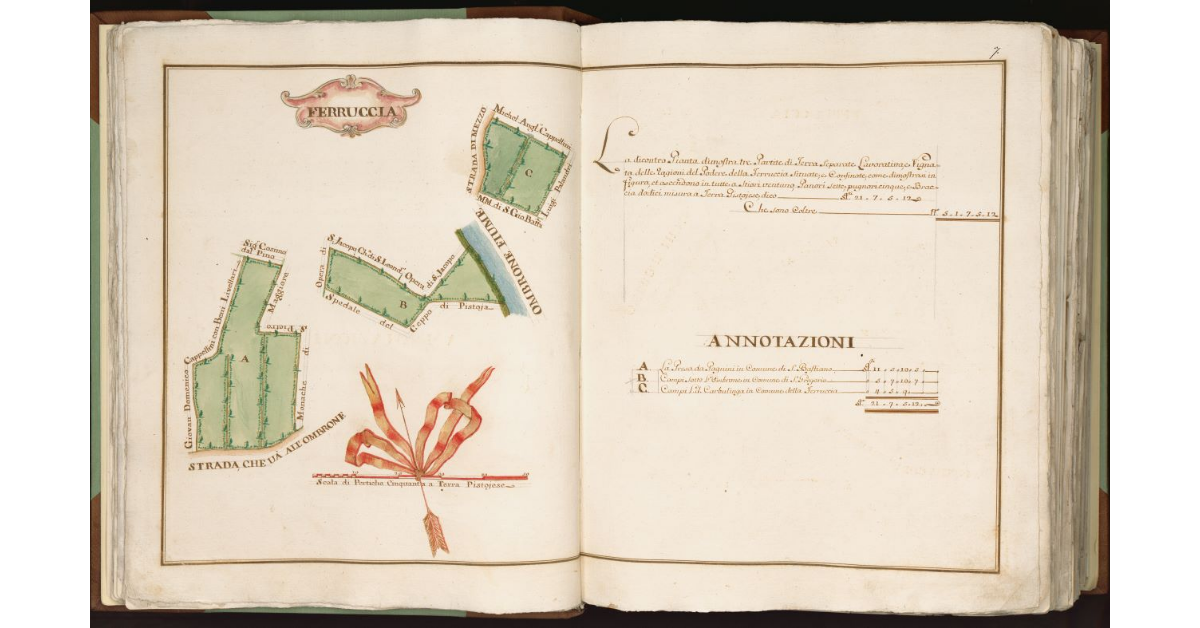 FERRUCCIA
STRADA DI MEZZO
Michel Angl. Cappellini
C
Luigi
MM. di S. Gio Batta
OMBRONE FIUME
Opera di
S. Jacopo Ch. di S. Leond. Opera
di S. Jacopo
B
Spedale del Ceppo di Pistoja
Sig. Cosimo
dal Pino
Giovan Domenico Cappellini con Beni Livellari
Maggiore
A
S. Pietro
Monache di
STRADA, CHE VA ALL' OMBRONE
Scala di Pertiche Cinquanta a Terra Pistojese
7.
La dicontro Pianta dimostra tre Partite di Terra separate Lavoratiua, e Vigna-
ta delle Ragioni del Podere della Ferruccia Situate, e Confinate, come dimostrasi in
figura, et ascendono in tutte a Stiori ventuno, Panori sette, pugnora cinque, e Brac-
cia dodici misura a Terra Pistojese, dico 21 - 7 - 5 - 12
Che sono Coltre 5 - 1 - 7 - 5 - 12
ANNOTAZIONI
A La Presa da Pagnina in Comune di S. Bastiano
B Campi sotto in Comune di S. Gregorio
C Campi in Comune della Ferruccia
21 - 7 - 5 - 12